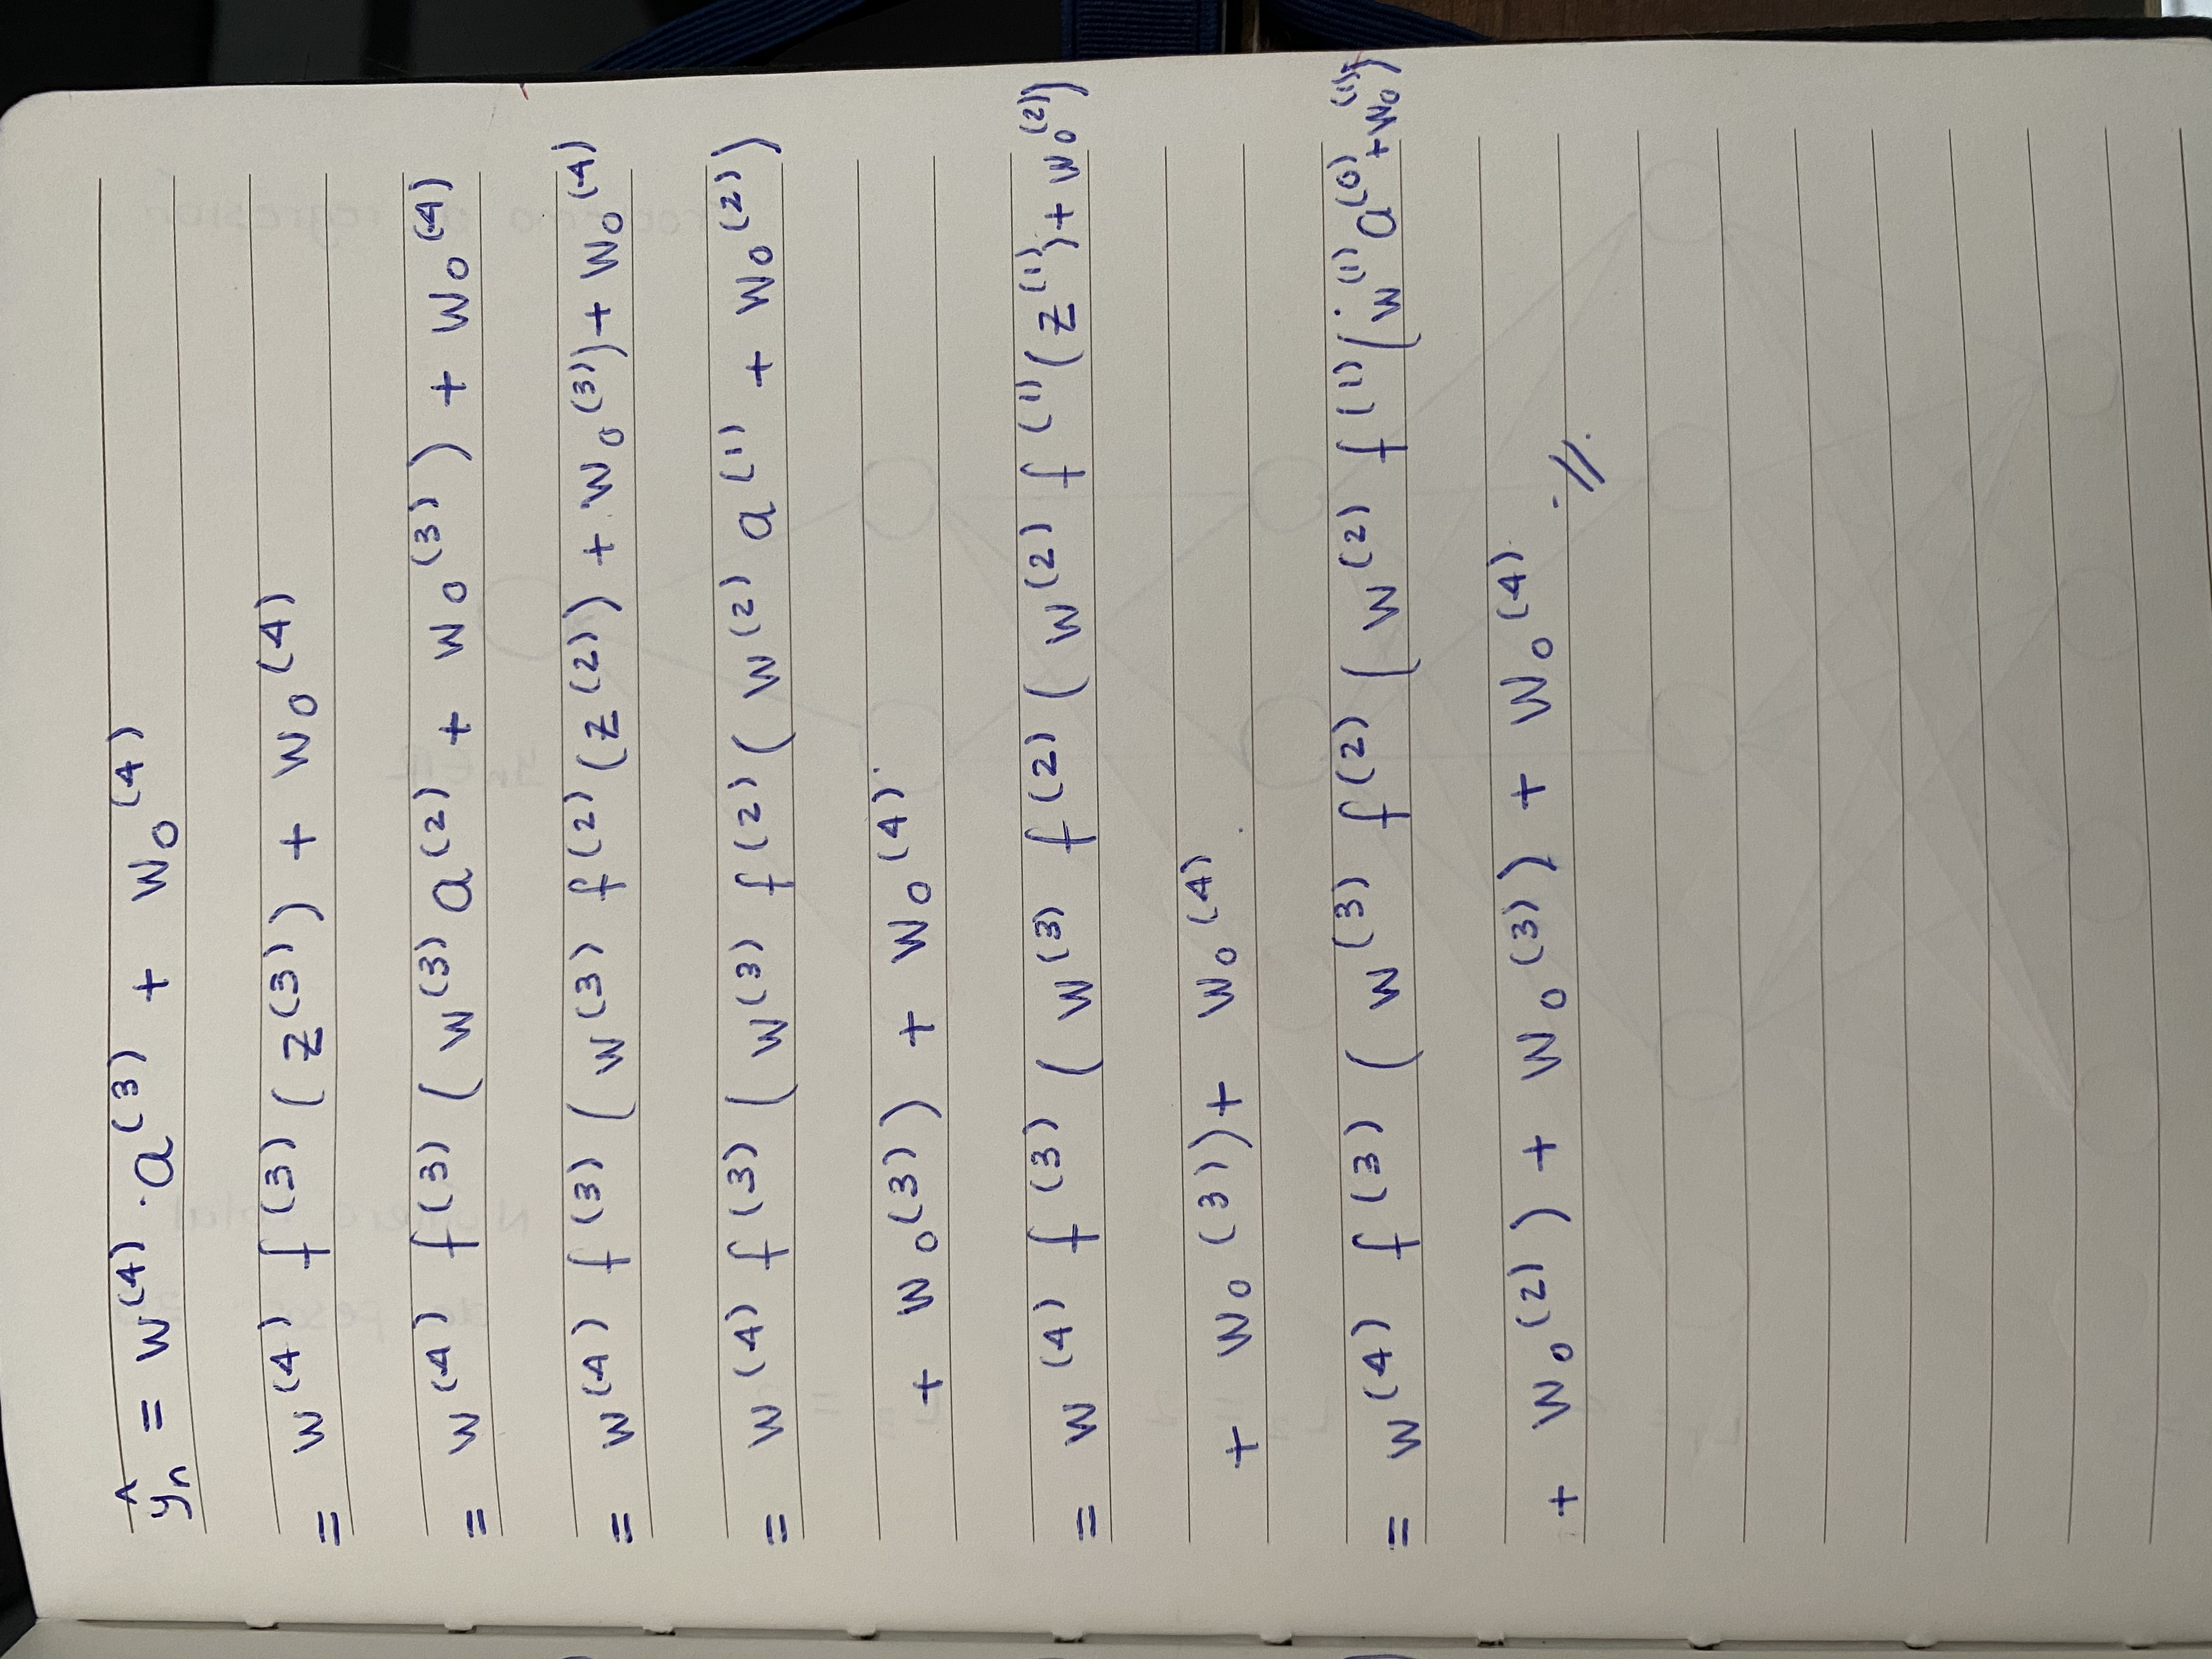 ŷₙ = w⁽⁴⁾ · a⁽³⁾ + w₀⁽⁴⁾
= w⁽⁴⁾ f⁽³⁾ ( z⁽³⁾ ) + w₀⁽⁴⁾
= w⁽⁴⁾ f⁽³⁾ ( w⁽³⁾ a⁽²⁾ + w₀⁽³⁾ ) + w₀⁽⁴⁾
= w⁽⁴⁾ f⁽³⁾ ( w⁽³⁾ f⁽²⁾ ( z⁽²⁾ ) + w₀⁽³⁾ ) + w₀⁽⁴⁾
= w⁽⁴⁾ f⁽³⁾ ( w⁽³⁾ f⁽²⁾ ( w⁽²⁾ a⁽¹⁾ + w₀⁽²⁾ )
+ w₀⁽³⁾ ) + w₀⁽⁴⁾
= w⁽⁴⁾ f⁽³⁾ ( w⁽³⁾ f⁽²⁾ ( w⁽²⁾ f⁽¹⁾ ( z⁽¹⁾ ) + w₀⁽²⁾ )
+ w₀⁽³⁾ ) + w₀⁽⁴⁾
= w⁽⁴⁾ f⁽³⁾ ( w⁽³⁾ f⁽²⁾ ( w⁽²⁾ f⁽¹⁾ ( w⁽¹⁾ a⁽⁰⁾ + w₀⁽¹⁾ )
+ w₀⁽²⁾ ) + w₀⁽³⁾ ) + w₀⁽⁴⁾ //.